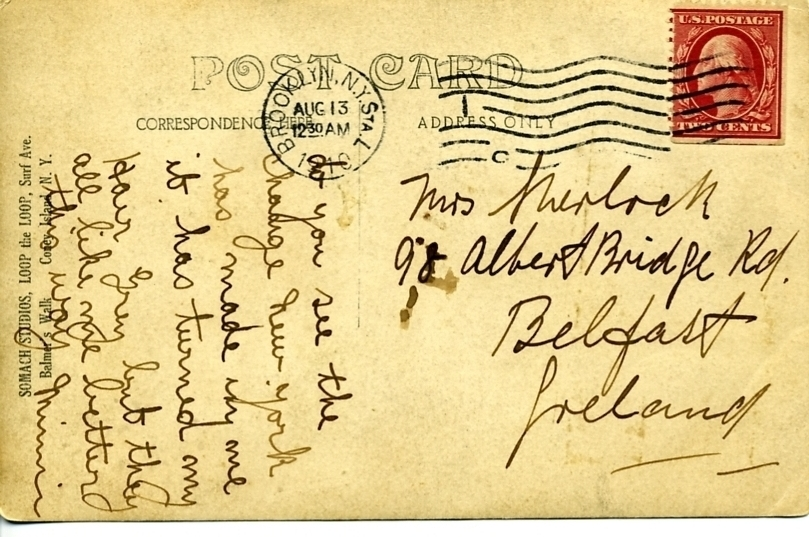 POST CARD
CORRESPONDENCE HERE
ADDRESS ONLY
BROOKLYN, N.Y. STA. L
AUG 13
12 30 AM
1910
U.S. POSTAGE
TWO CENTS
Mrs Sherlock
98 Albert Bridge Rd.
Belfast
Ireland
do you see the
change New York
has made in me
it has turned my
Hair Grey but they
all like me better
this way Minnie
SOMACH STUDIOS, LOOP the LOOP, Surf Ave.
Balmer's Walk Coney Island, N. Y.